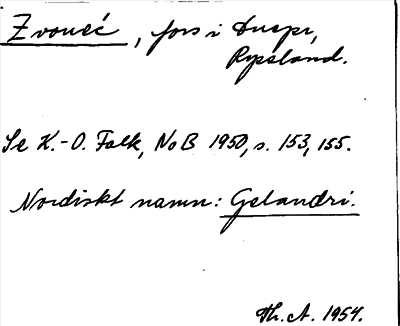 Zvoneć, fors i Dnepr,
Ryssland.
Se K.-O. Falk, NoB 1950, s. 153, 155.
Nordiskt namn: Gelandri.
Th. A. 1954.